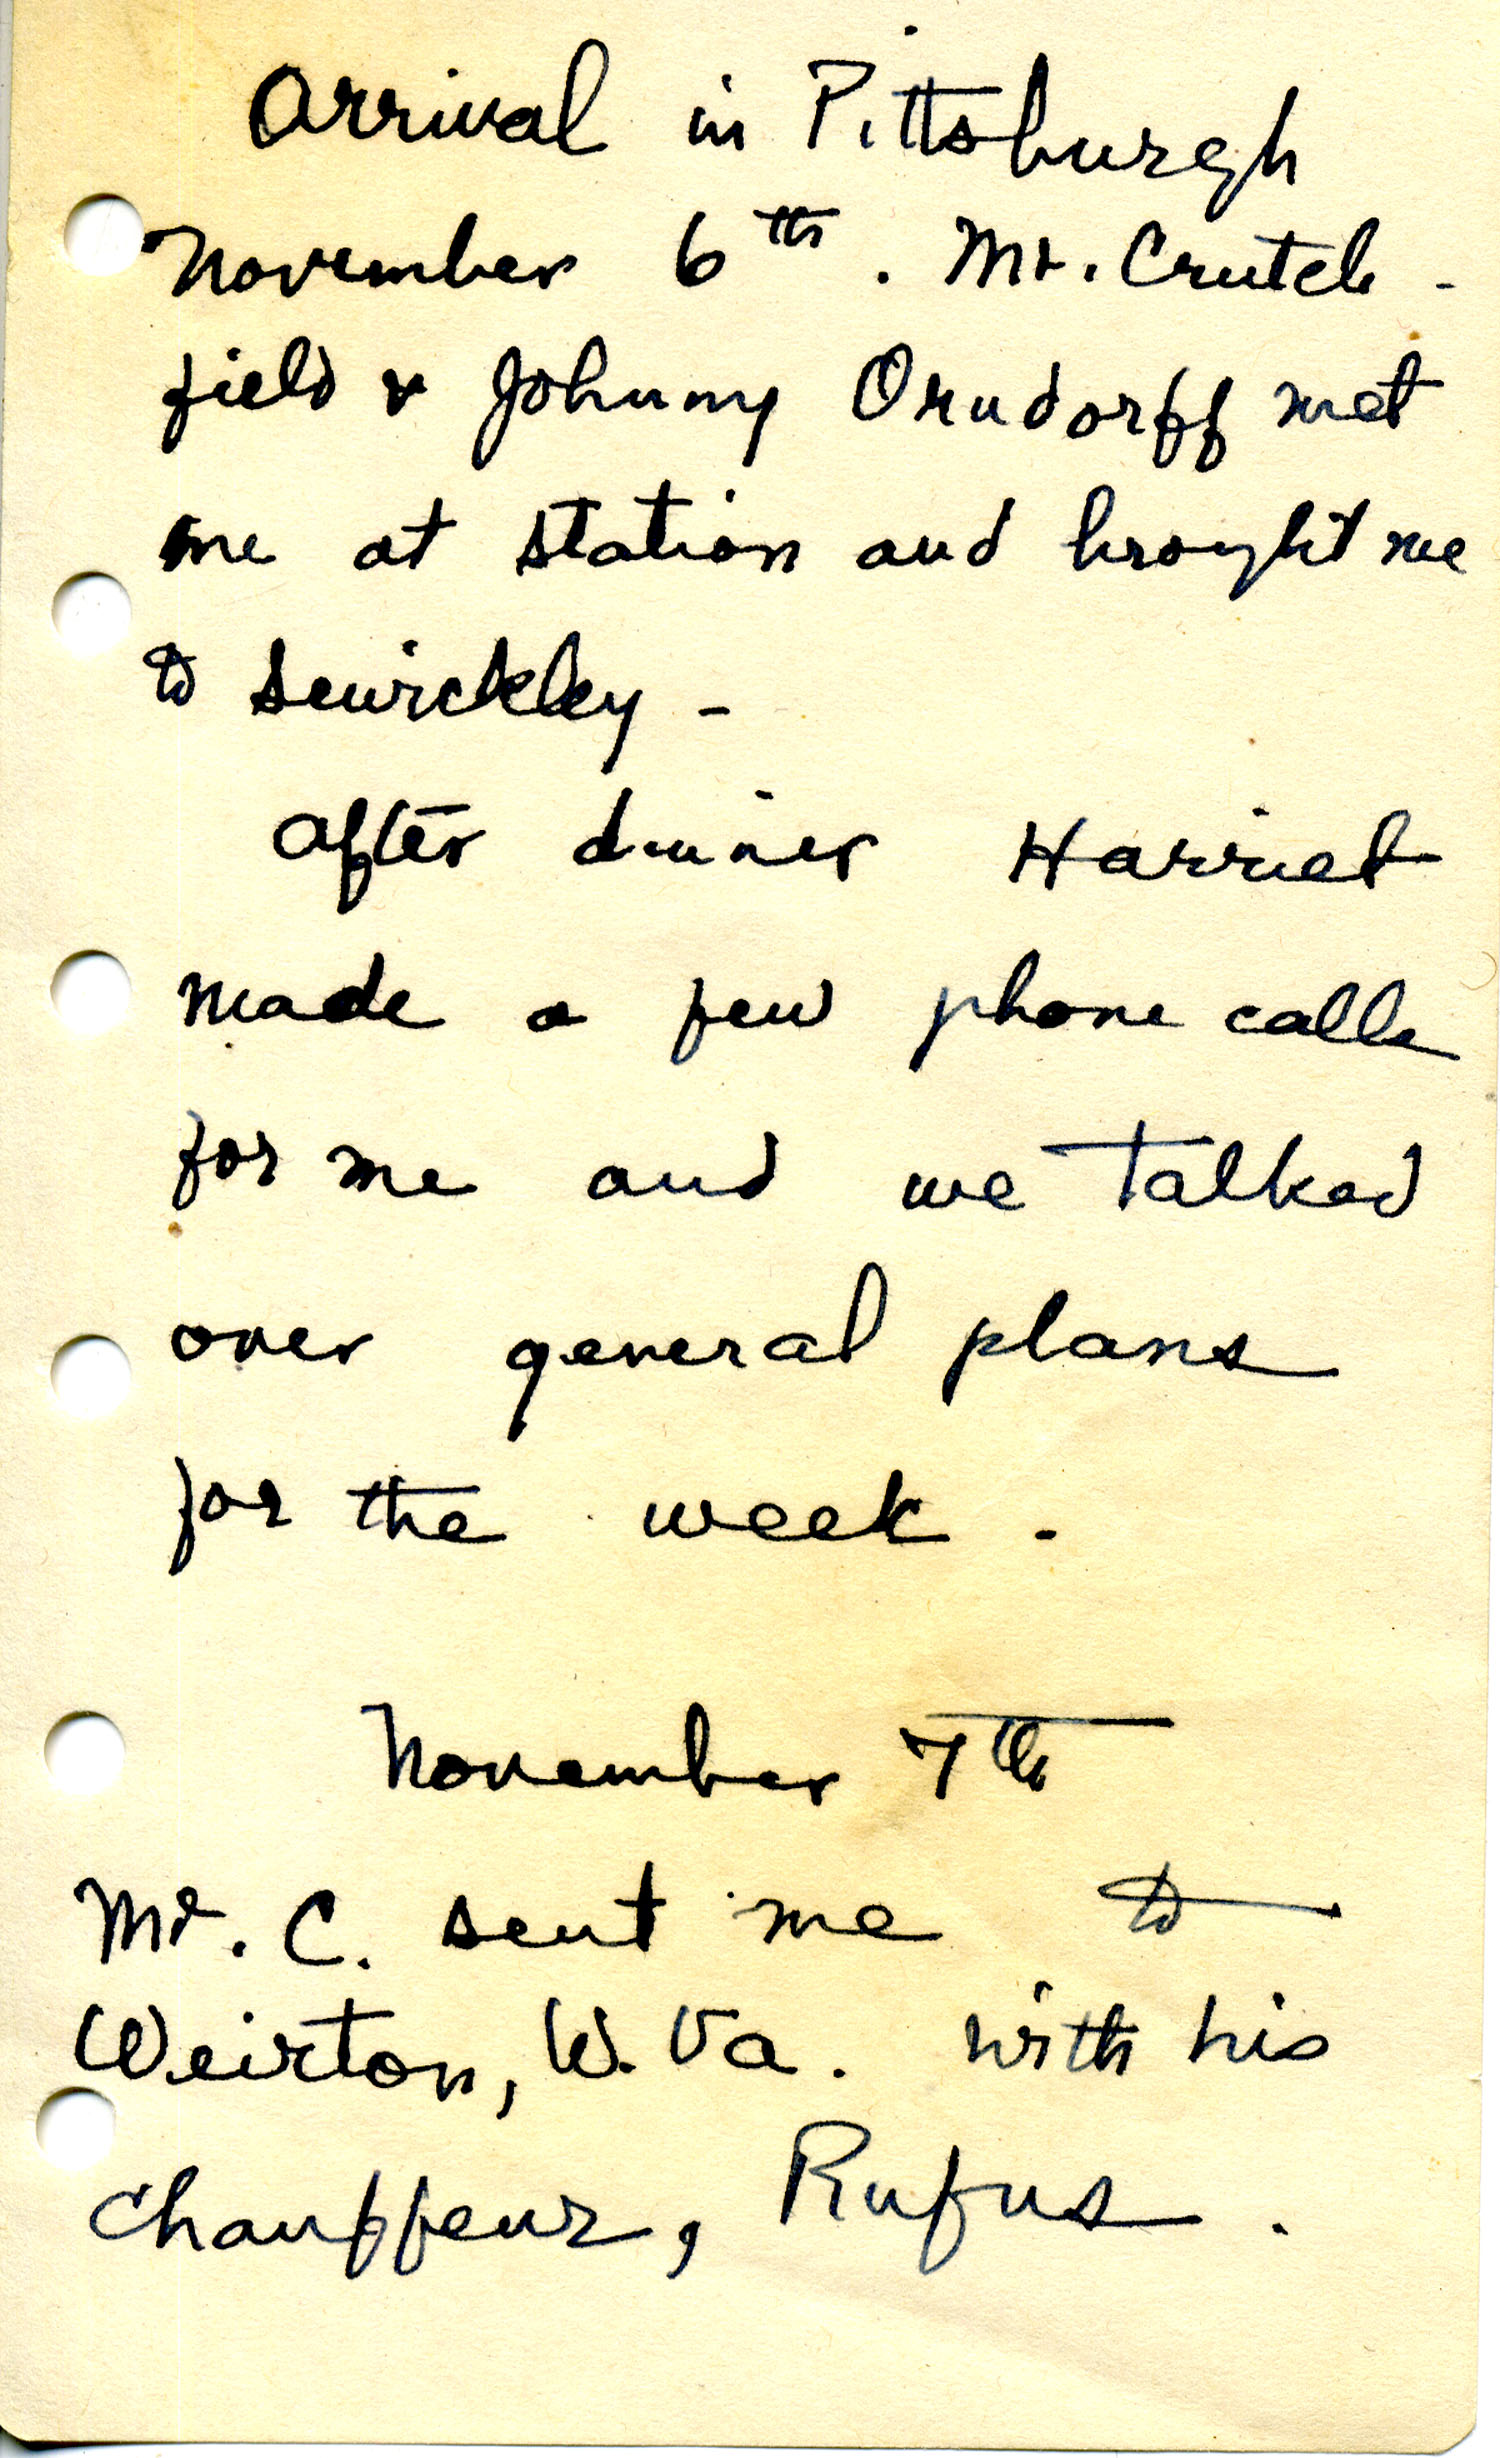 Arrival in Pittsburgh
November 6th. Mr. Crutch-
field & Johnny Orndorff met
me at station and brought me
to Sewickley -
After dinner Harriet
made a few phone calls
for me and we talked
over general plans
for the week.
November 7th
Mr. C. sent me to
Weirton, W. Va. with his
chauffeur, Rufus.